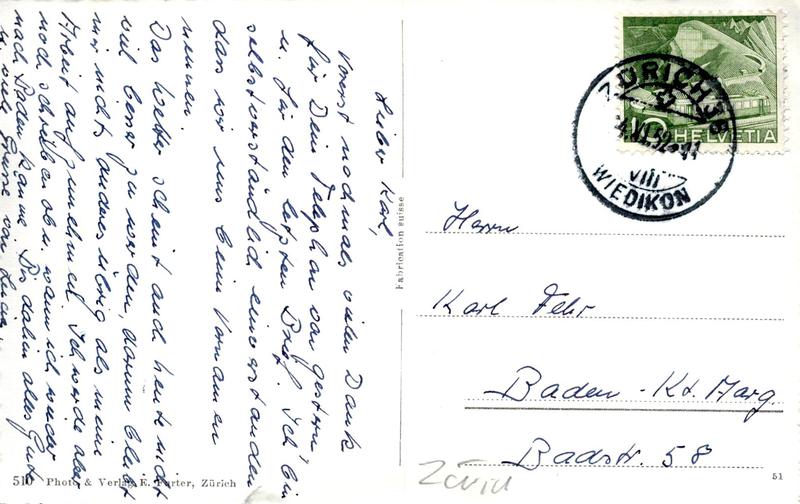 Lieber Karl,
Vorerst nochmals vielen Dank
für Dein Telephon von gestern
u. für den letzten Brief. Ich bin
selbstverständlich einverstanden
dass wir uns beim Vornamen
nennen.
Das Wetter scheint auch heute nicht
viel besser zu werden, darum bleibt
mir nichts anderes übrig als meine
Arbeit aufzunehmen. Ich werde aber
noch schreiben ob u. wann ich wieder
nach Baden komme. Bis dahin alles Gute
u. viele Grüsse von
510 Photo & Verlag E. Furter, Zürich
Fabrication suisse
10 HELVETIA
ZÜRICH 36
VI.52
VIII
WIEDIKON
Herrn
Karl Fehr
Baden - Kt. Aarg
Badstr. 58
Zürich
51